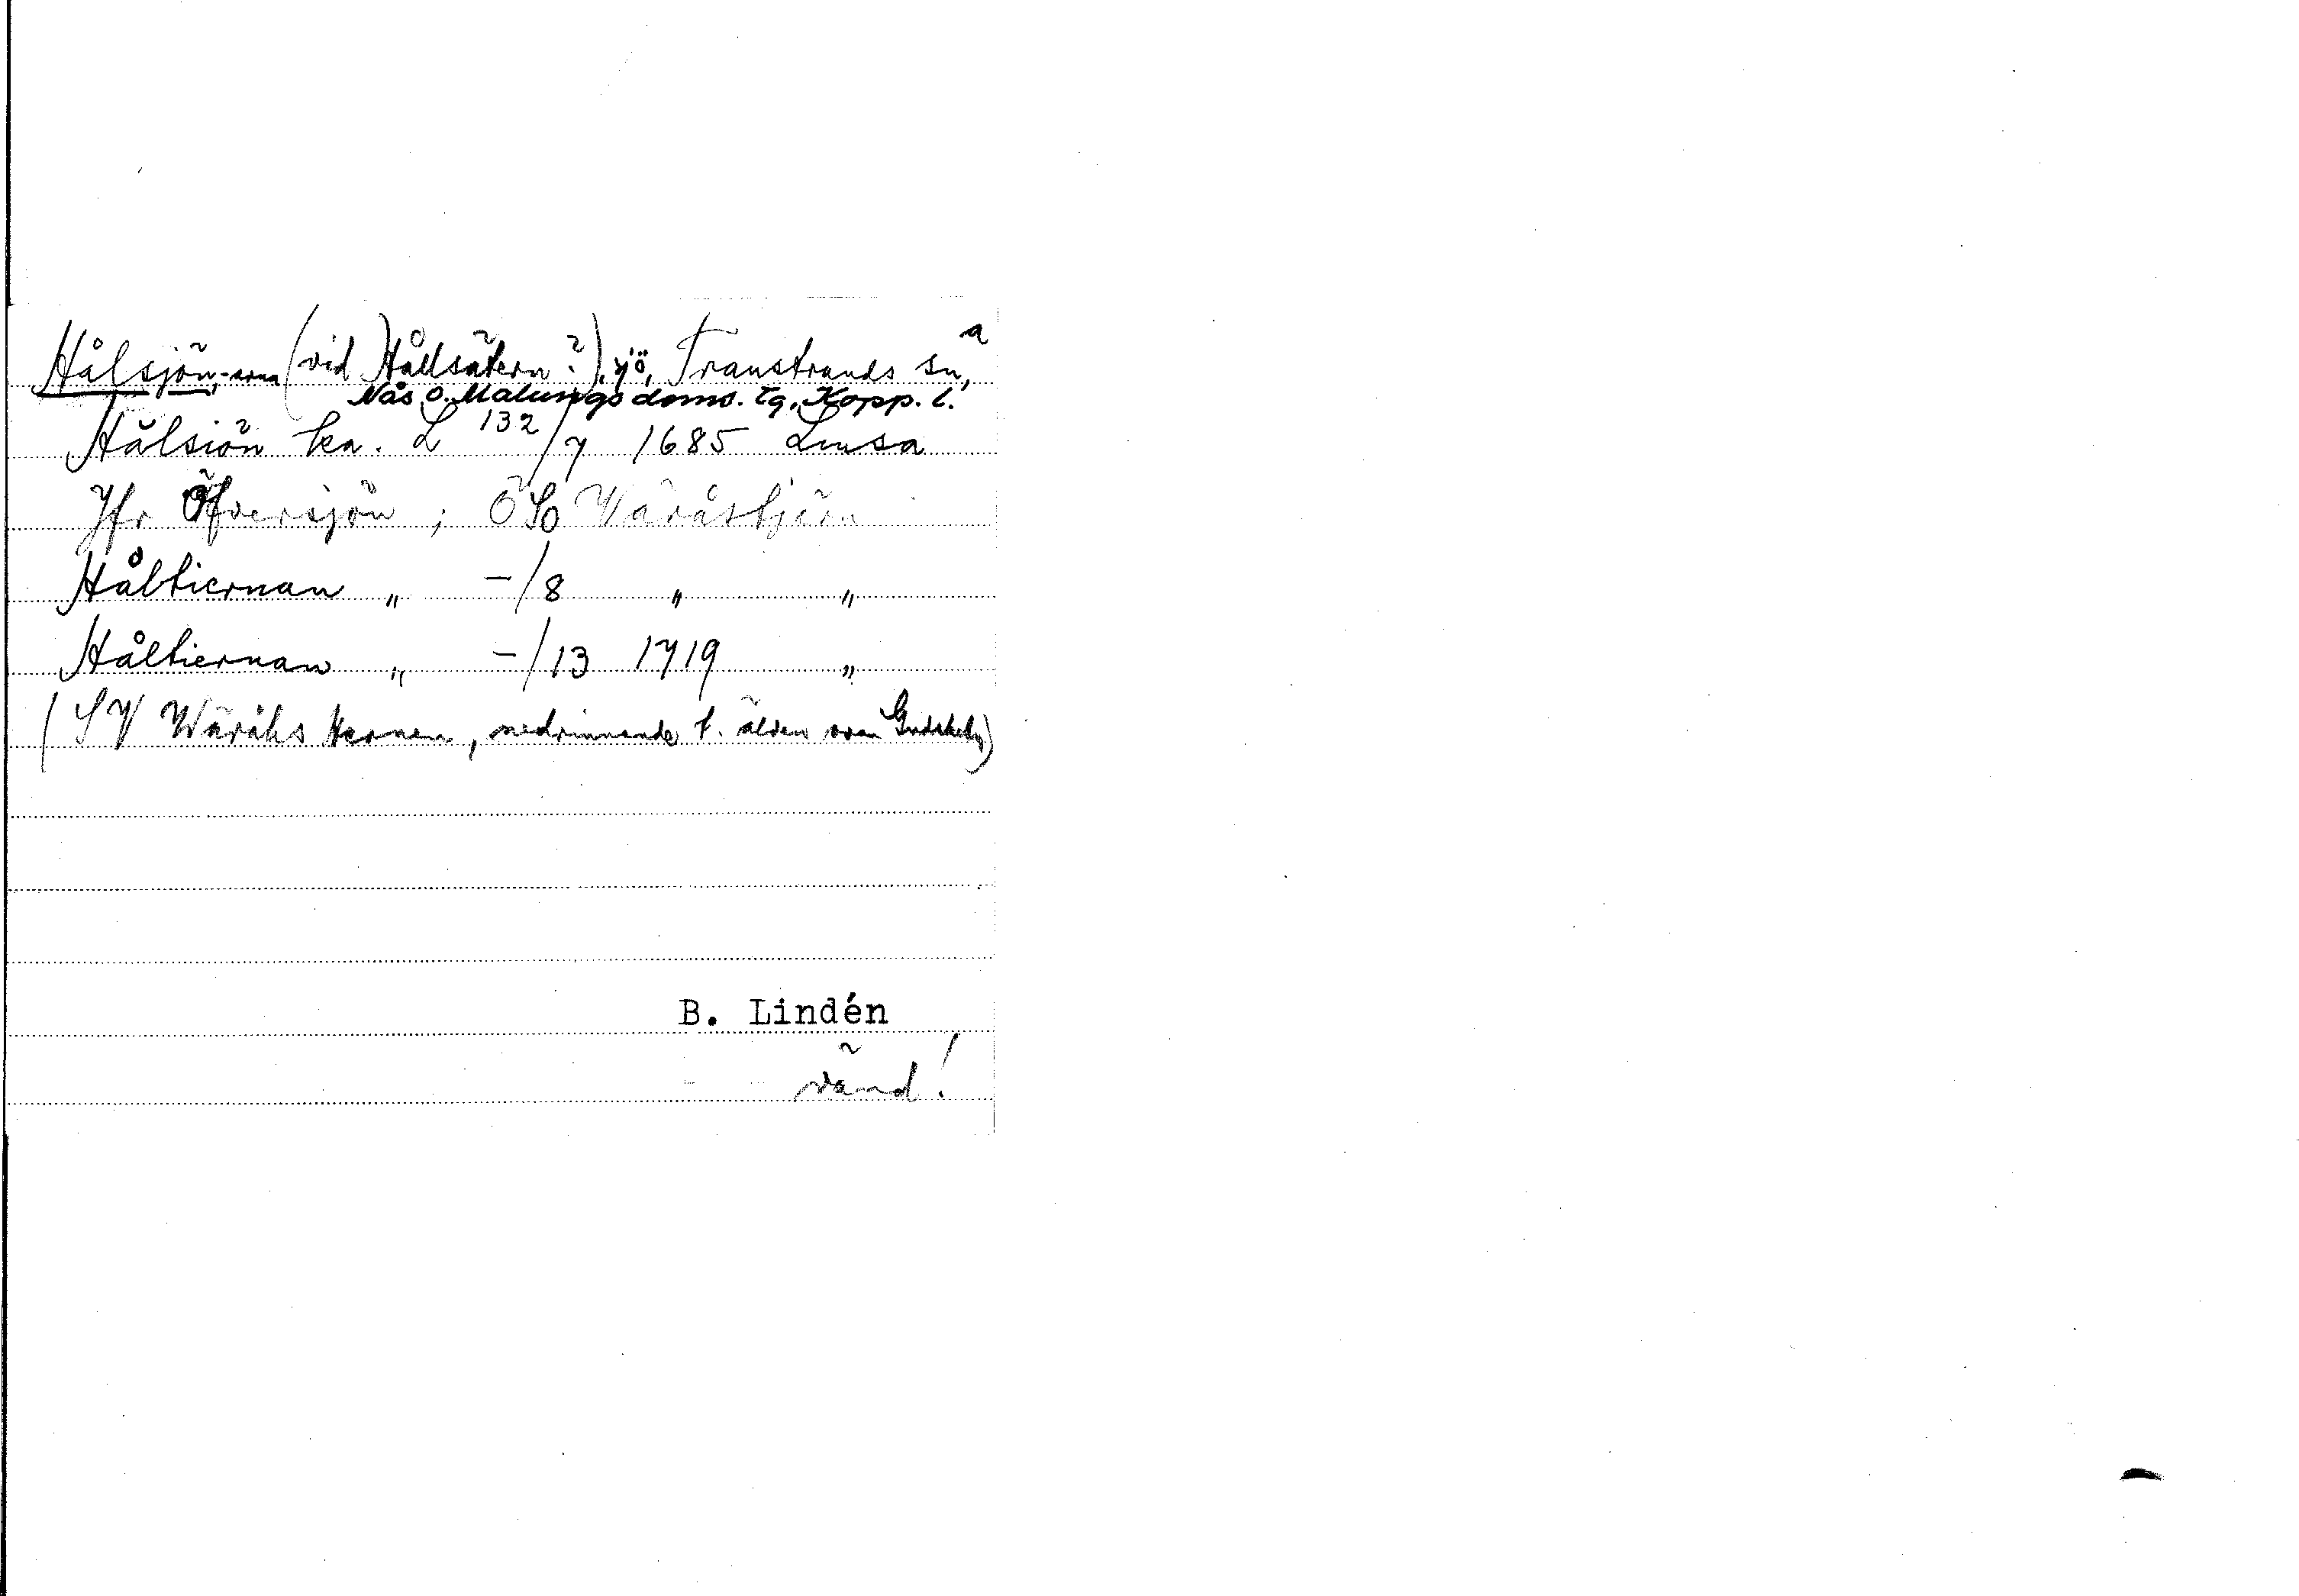 Hålsjön, -arna (vid Hållsätern?), sjö, Transtrands sn, a
Nås o. Malungs doms. tg, Kopp. l.
Hålsiön ka. L 132/7 1685 Limsa
Jfr Öfversjön ; ÖSO Väråstjärn
Håltiernan " -/8 " "
Håltiernan " -/13 1719 "
(SV Wäråhs tternen, nedrinnande t. älden ovan
B. Lindén
vänd!